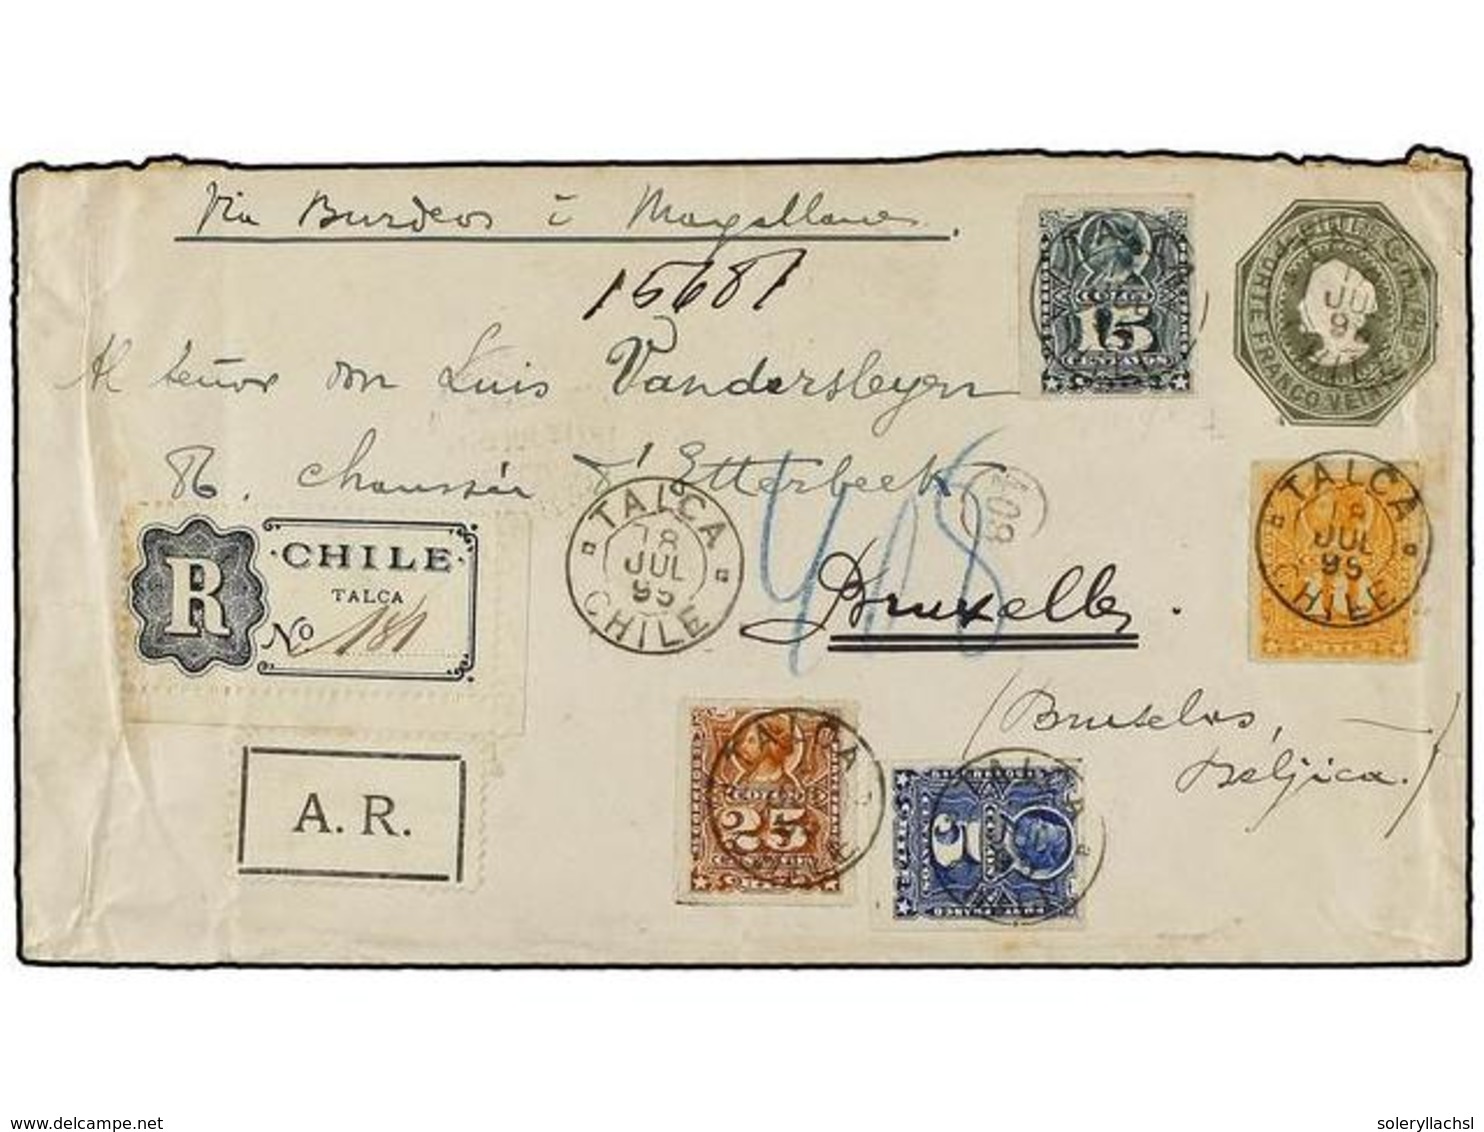 Via Burdeos ó Magallanes.
15681
Al señor don Luis Vandersleyen
86. Chaussée d'Etterbeek
Bruxelles.
(Bruselas,
Béljica.)
408
808
R
CHILE
TALCA
No 181
A. R.
TALCA
18
JUL
95
CHILE
COLON
15
CENTAVOS
PORTE FRANCO VEINTE
JUL
9
TALCA
18
JUL
95
CHILE
TALCA
25
5
www.delcampe.net
soleryllachsl